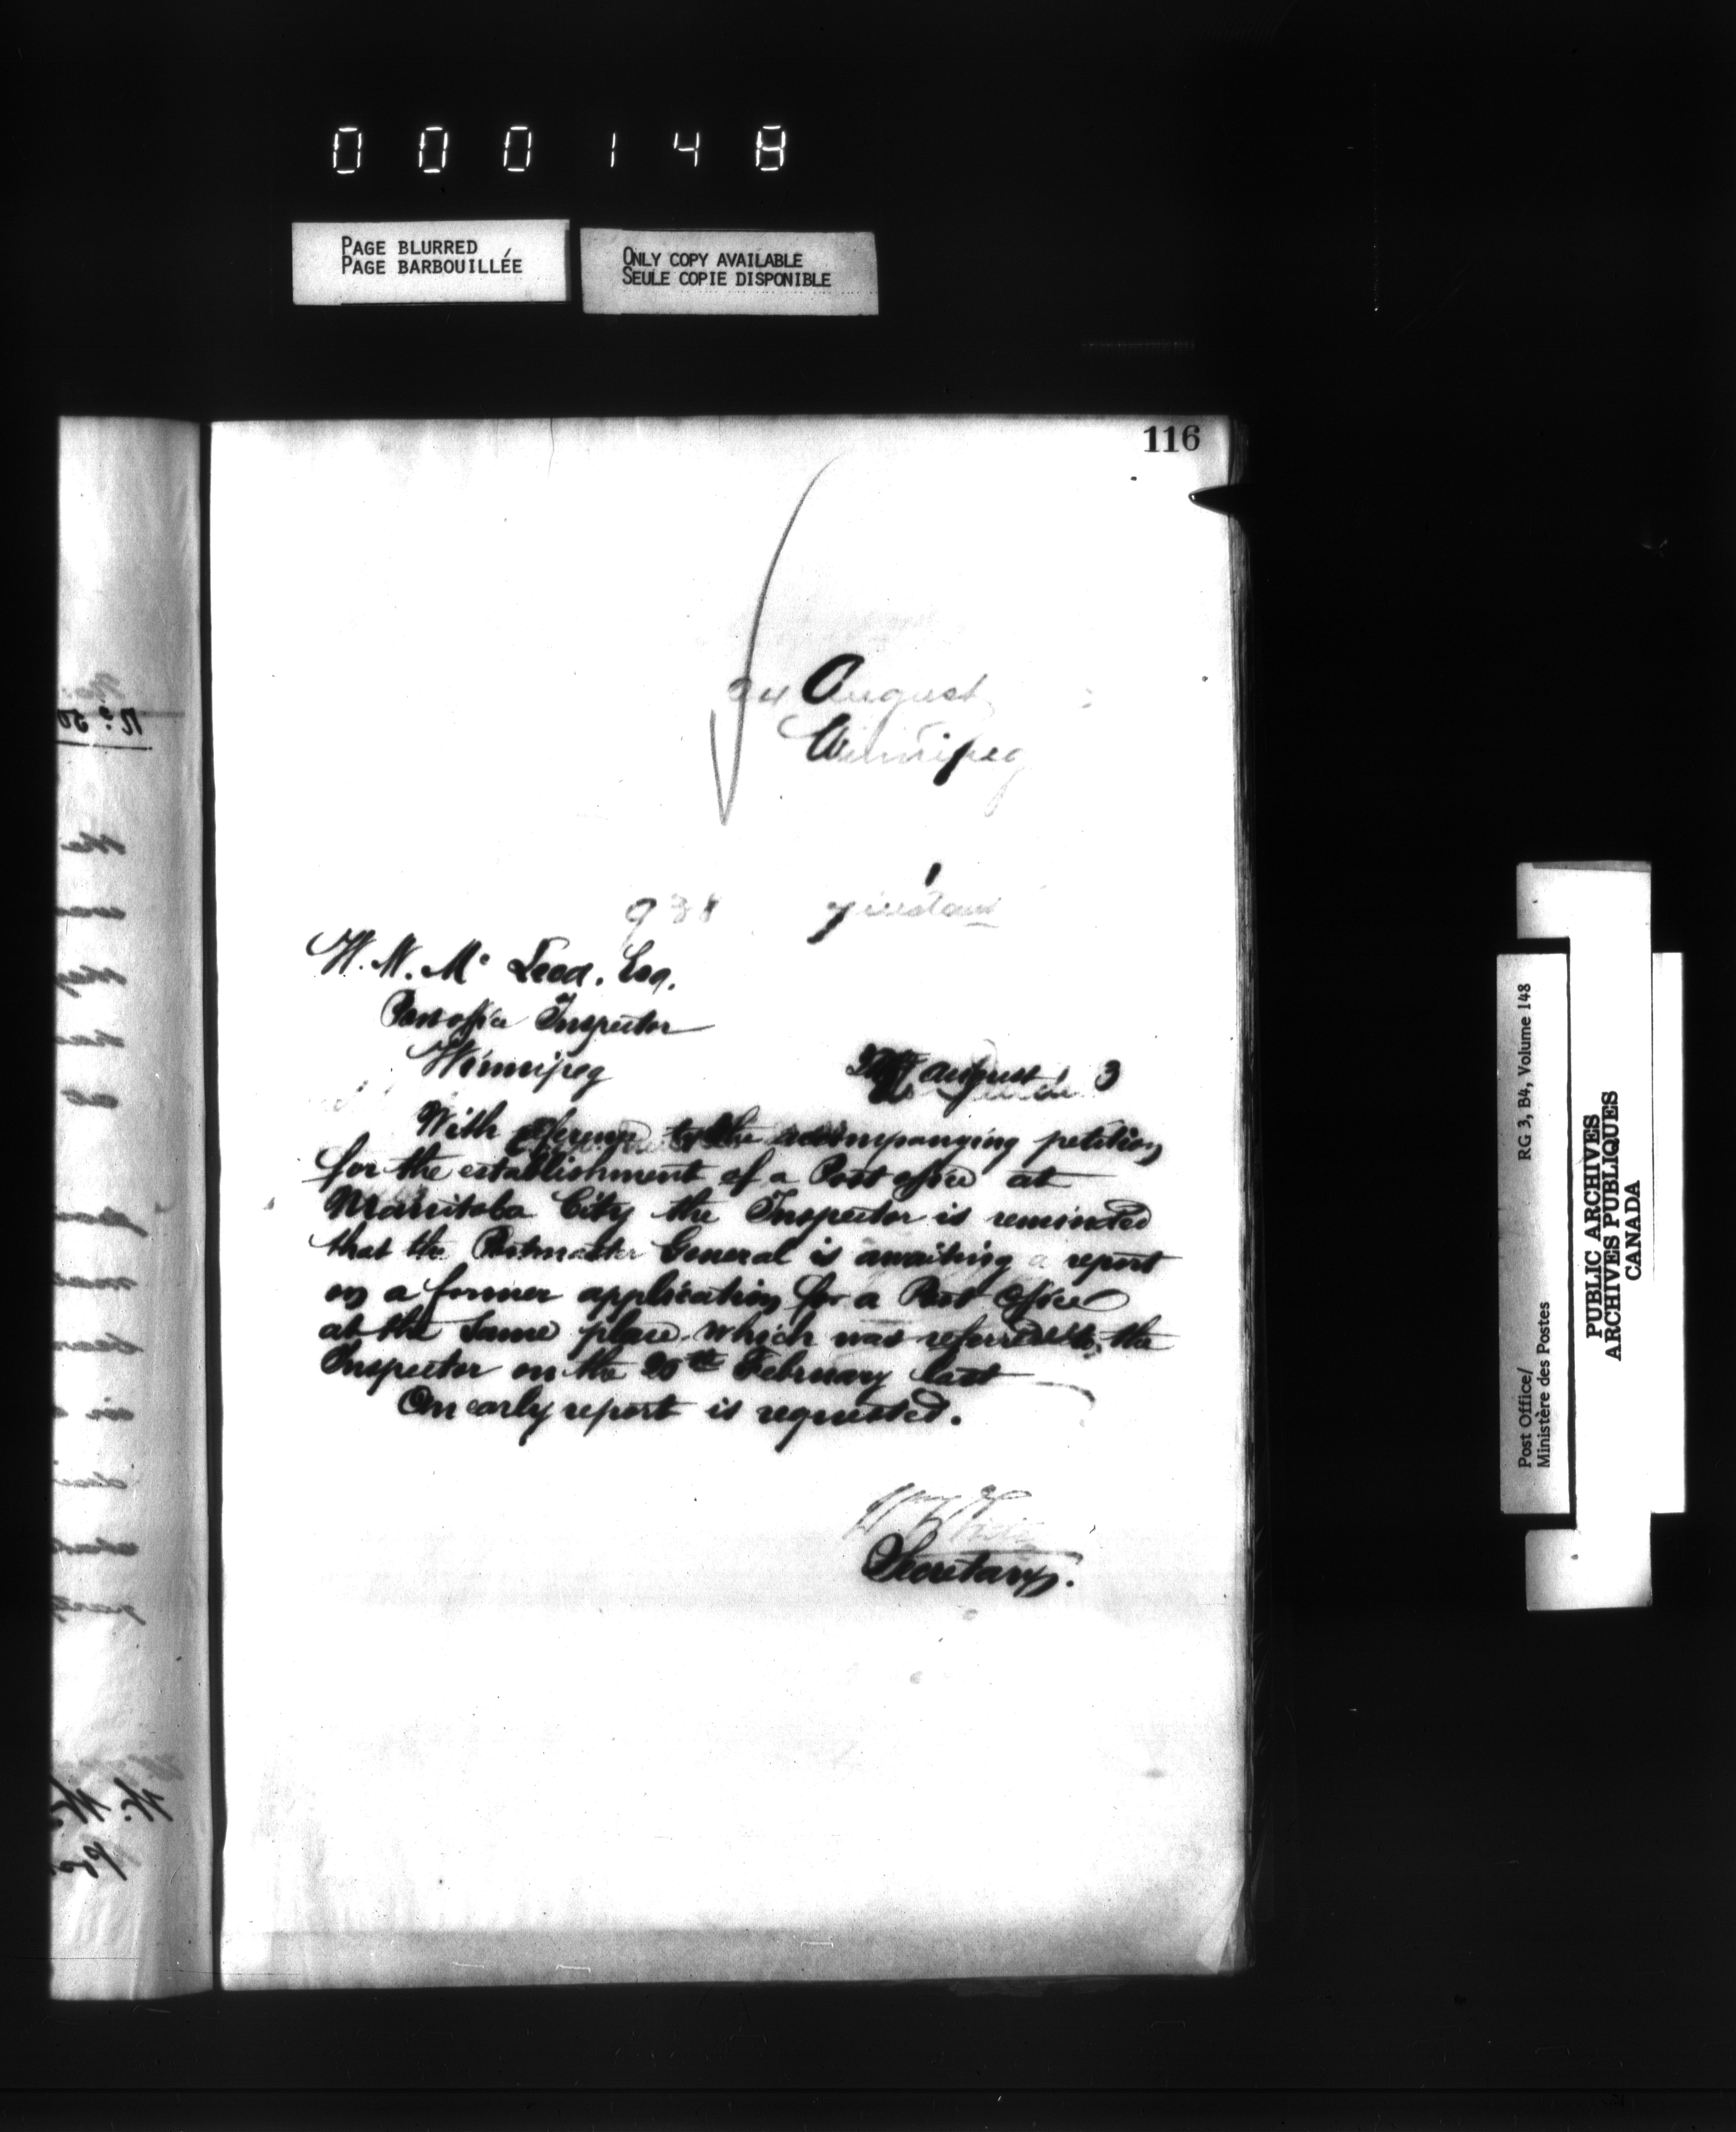 000148
PAGE BLURRED
PAGE BARBOUILLÉE
ONLY COPY AVAILABLE
SEULE COPIE DISPONIBLE
116
24 August
Winnipeg
938
W. W. Mc Leod. Esq.
Post office Inspector
Winnipeg
August 3
With reference to the accompanying petition
for the establishment of a Post office at
Manitoba City the Inspector is reminded
that the Postmaster General is awaiting a report
on a former application for a Post Office
at the same place which was referred to the
Inspector on the 20th February last
An early report is requested.
Secretary.
Post Office/
Ministère des Postes
RG 3, B4, Volume 148
PUBLIC ARCHIVES
ARCHIVES PUBLIQUES
CANADA